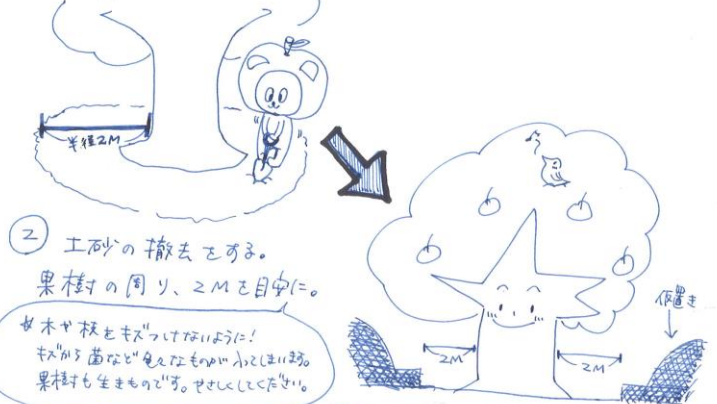 半径2M
② 土砂の撤去をする。
果樹の周り、2Mを目安に。
木や枝をキズつけないように!
キズから菌など色々なものが入ってしまいます。
果樹も生きものです。やさしくしてください。
仮置き
2M
2M